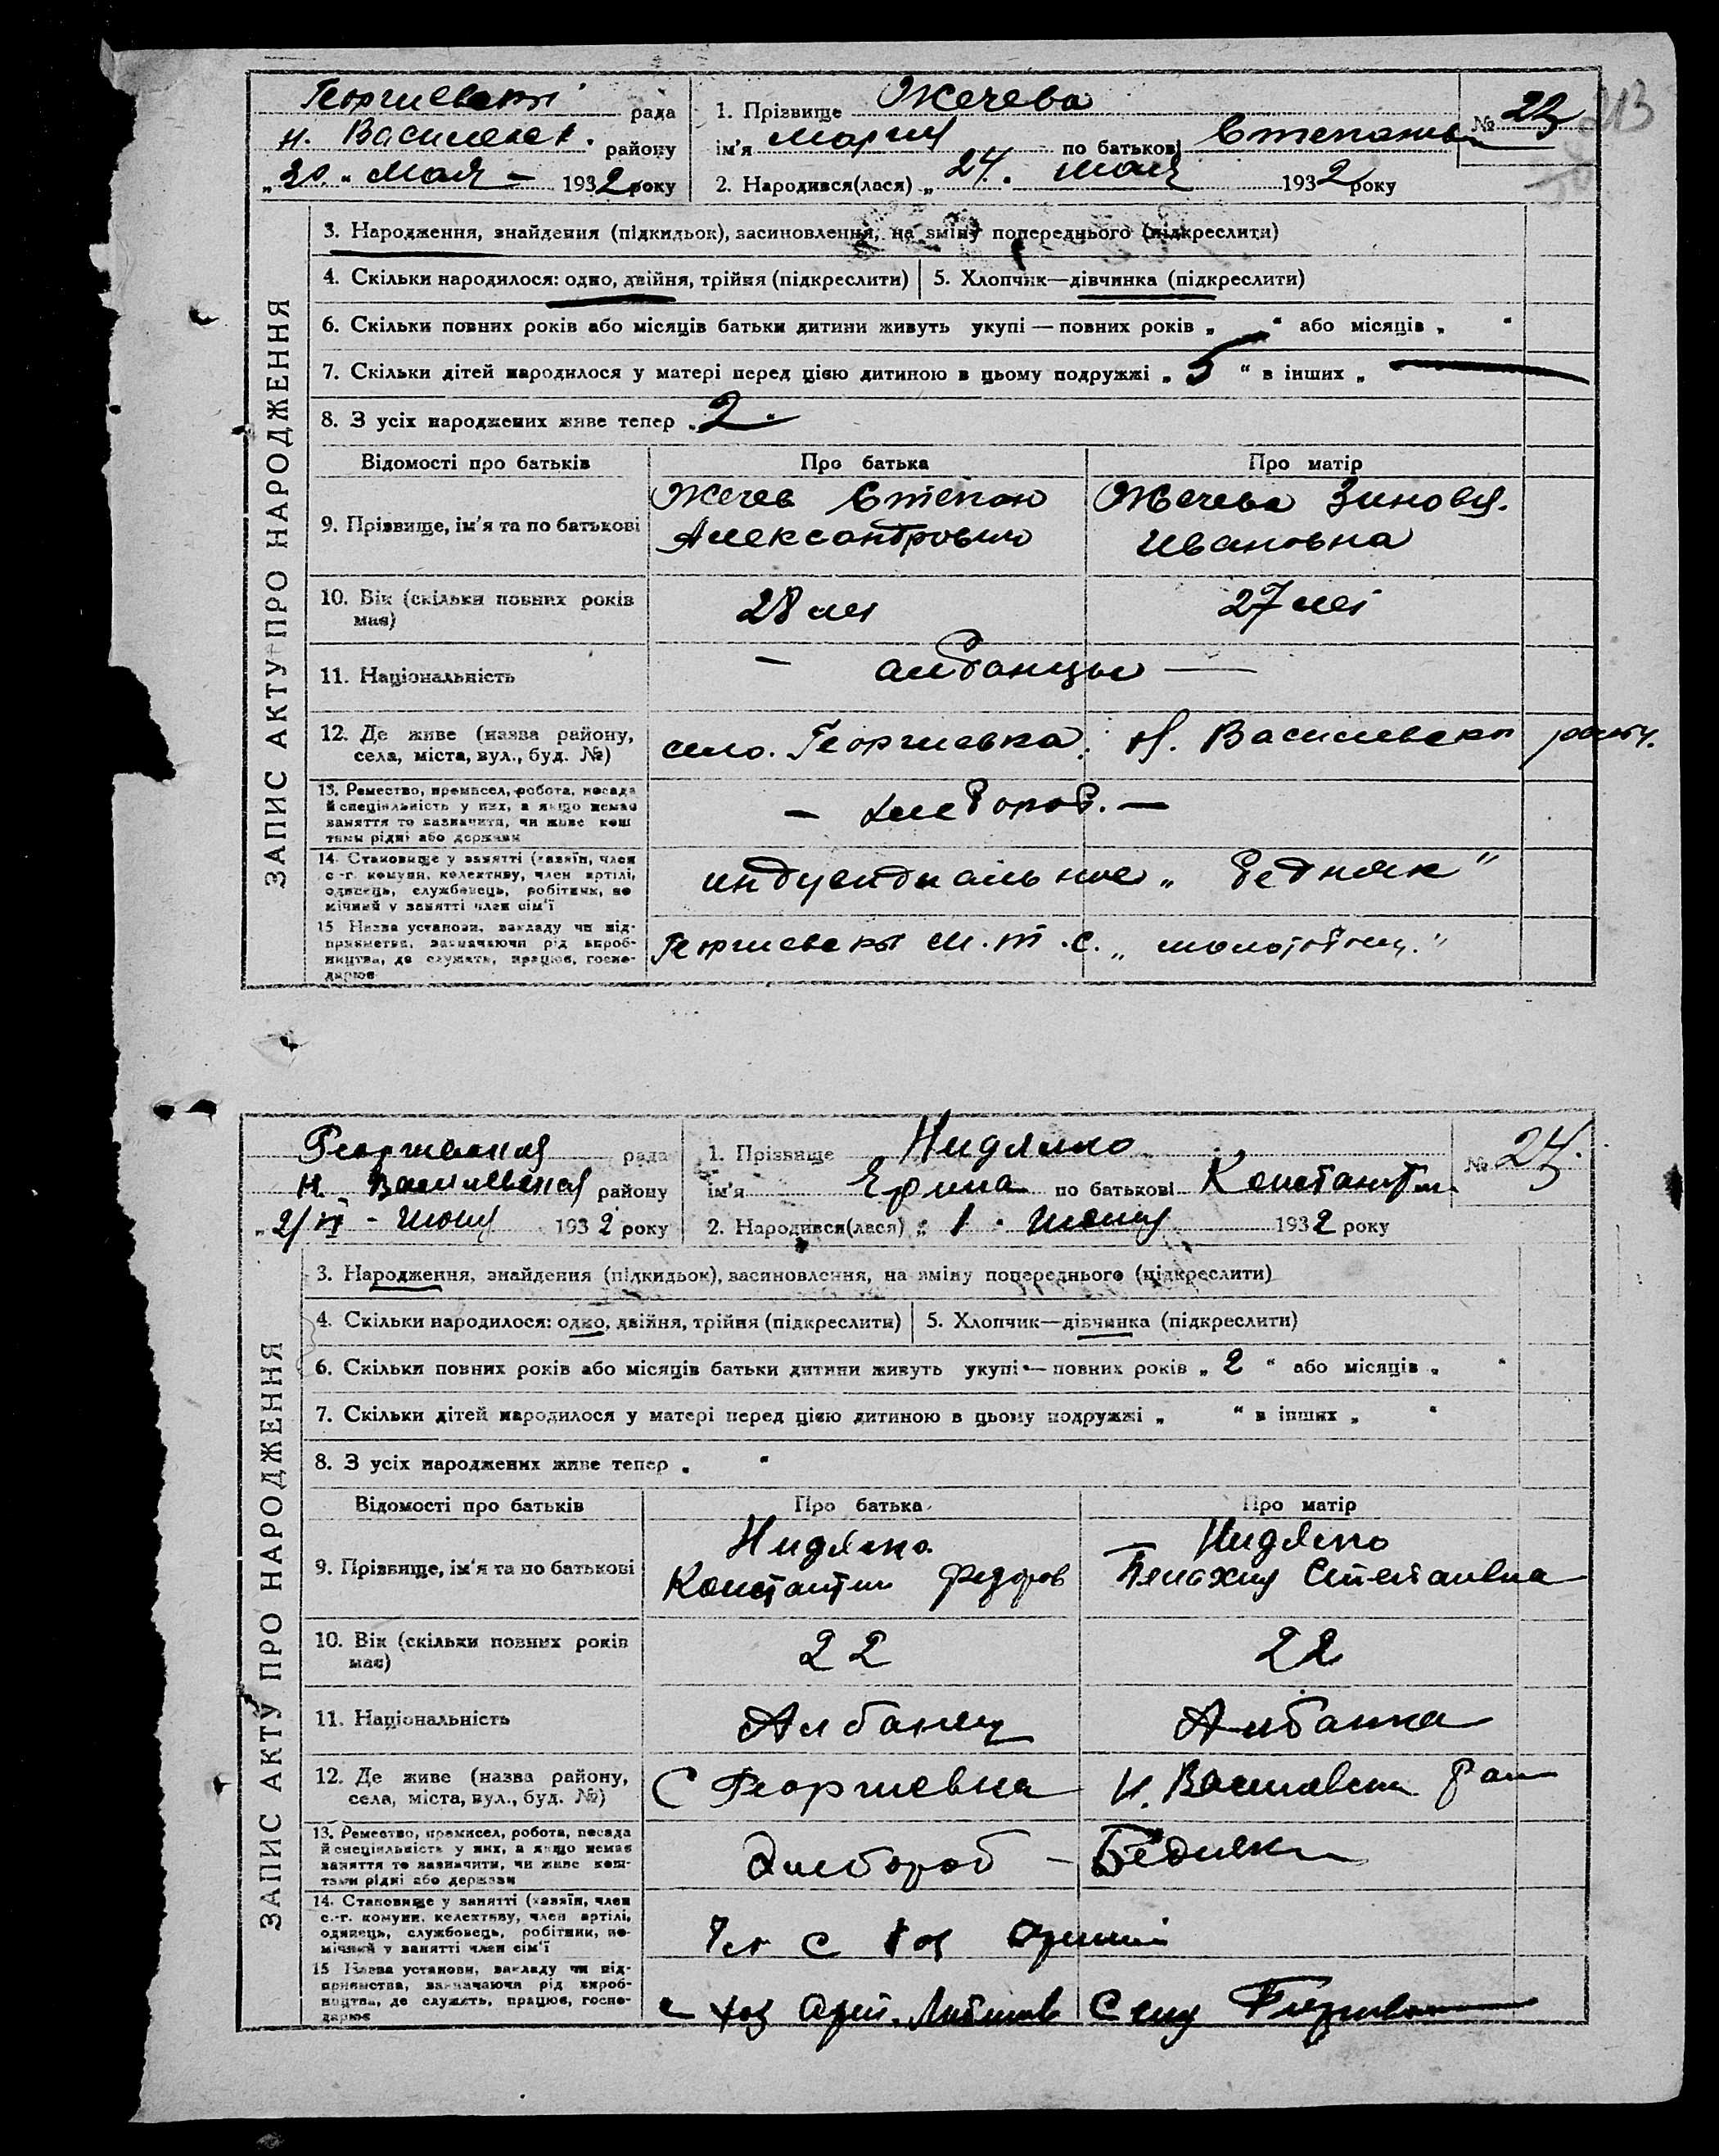 213
Георгиевский рада
Н. Василевск. району
„30.“ Мая 1932 року
1. Прізвище Жечева
№ 23
ім'я Мария по батькові Степановн
2. Народився(лася) „24. мая 1932 року
ЗАПИС АКТУ ПРО НАРОДЖЕННЯ
3. Народження, знайдення (підкидьок), засиновлення, на зміну попереднього (підкреслити)
4. Скільки народилося: одно, двійня, трійня (підкреслити) 5. Хлопчик—дівчинка (підкреслити)
6. Скільки повних років або місяців батьки дитини живуть укупі — повних років „ “ або місяців „ “
7. Скільки дітей народилося у матері перед цією дитиною в цьому подружжі „ 5 “ в інших „
8. З усіх народжених живе тепер „ 2.
Відомості про батьків Про батька Про матір
9. Прізвище, ім'я та по батькові
Жечев Степан
Александрович
Жечева Зиновья
Ивановна
10. Вік (скільки повних років має) 28 лет 27 лет
11. Національність — албанцы —
12. Де живе (назва району, села, міста, вул., буд. №) село. Георгиевка. Н. Василевски район.
13. Ремество, промисел, робота, посада
й спеціяльність у них, а якщо немає
заняття то зазначити, чи живе кош-
тами рідні або держави
— хлебороб. —
14. Становище у занятті (хазяїн, член
с.-г. комуни, колективу, член артілі,
одинець, службовець, робітник, по-
мічний у занятті член сім'ї
индувидиальное „ бедняк“
15 Назва установи, закладу чи під-
приємства, зазначаючи рід вироб-
ництва, де служить, працює, госпо-
дарює
Георгиевский м.т.с. „
Георгиевская рада
Н. Василевская району
„2/VI - июня 1932 року
1. Прізвище Нидялко
№ 24.
ім'я Ерина по батькові Константин
2. Народився(лася) „ 1 . июня 1932 року
ЗАПИС АКТУ ПРО НАРОДЖЕННЯ
3. Народження, знайдення (підкидьок), засиновлення, на зміну попереднього (підкреслити)
4. Скільки народилося: одно, двійня, трійня (підкреслити) 5. Хлопчик—дівчинка (підкреслити)
6. Скільки повних років або місяців батьки дитини живуть укупі — повних років „ 2 “ або місяців „ “
7. Скільки дітей народилося у матері перед цією дитиною в цьому подружжі „ “ в інших „ “
8. З усіх народжених живе тепер „ “
Відомості про батьків Про батька Про матір
9. Прізвище, ім'я та по батькові
Нидялко
Константин Федоров
Нидялко
Пелохия Степановна
10. Вік (скільки повних років має) 22 22
11. Національність Албанец Албанка
12. Де живе (назва району, села, міста, вул., буд. №) С Георгиевка Н. Василевски рай
13. Ремество, промисел, робота, посада
й спеціяльність у них, а якщо немає
заняття то зазначити, чи живе кош-
тами рідні або держави
Хлебороб — Бедняки
14. Становище у занятті (хазяїн, член
с.-г. комуни, колективу, член артілі,
одинець, службовець, робітник, по-
мічний у занятті член сім'ї
Чл С хоз Артели
15 Назва установи, закладу чи під-
приємства, зазначаючи рід вироб-
ництва, де служить, працює, госпо-
дарює
С хоз Арт.